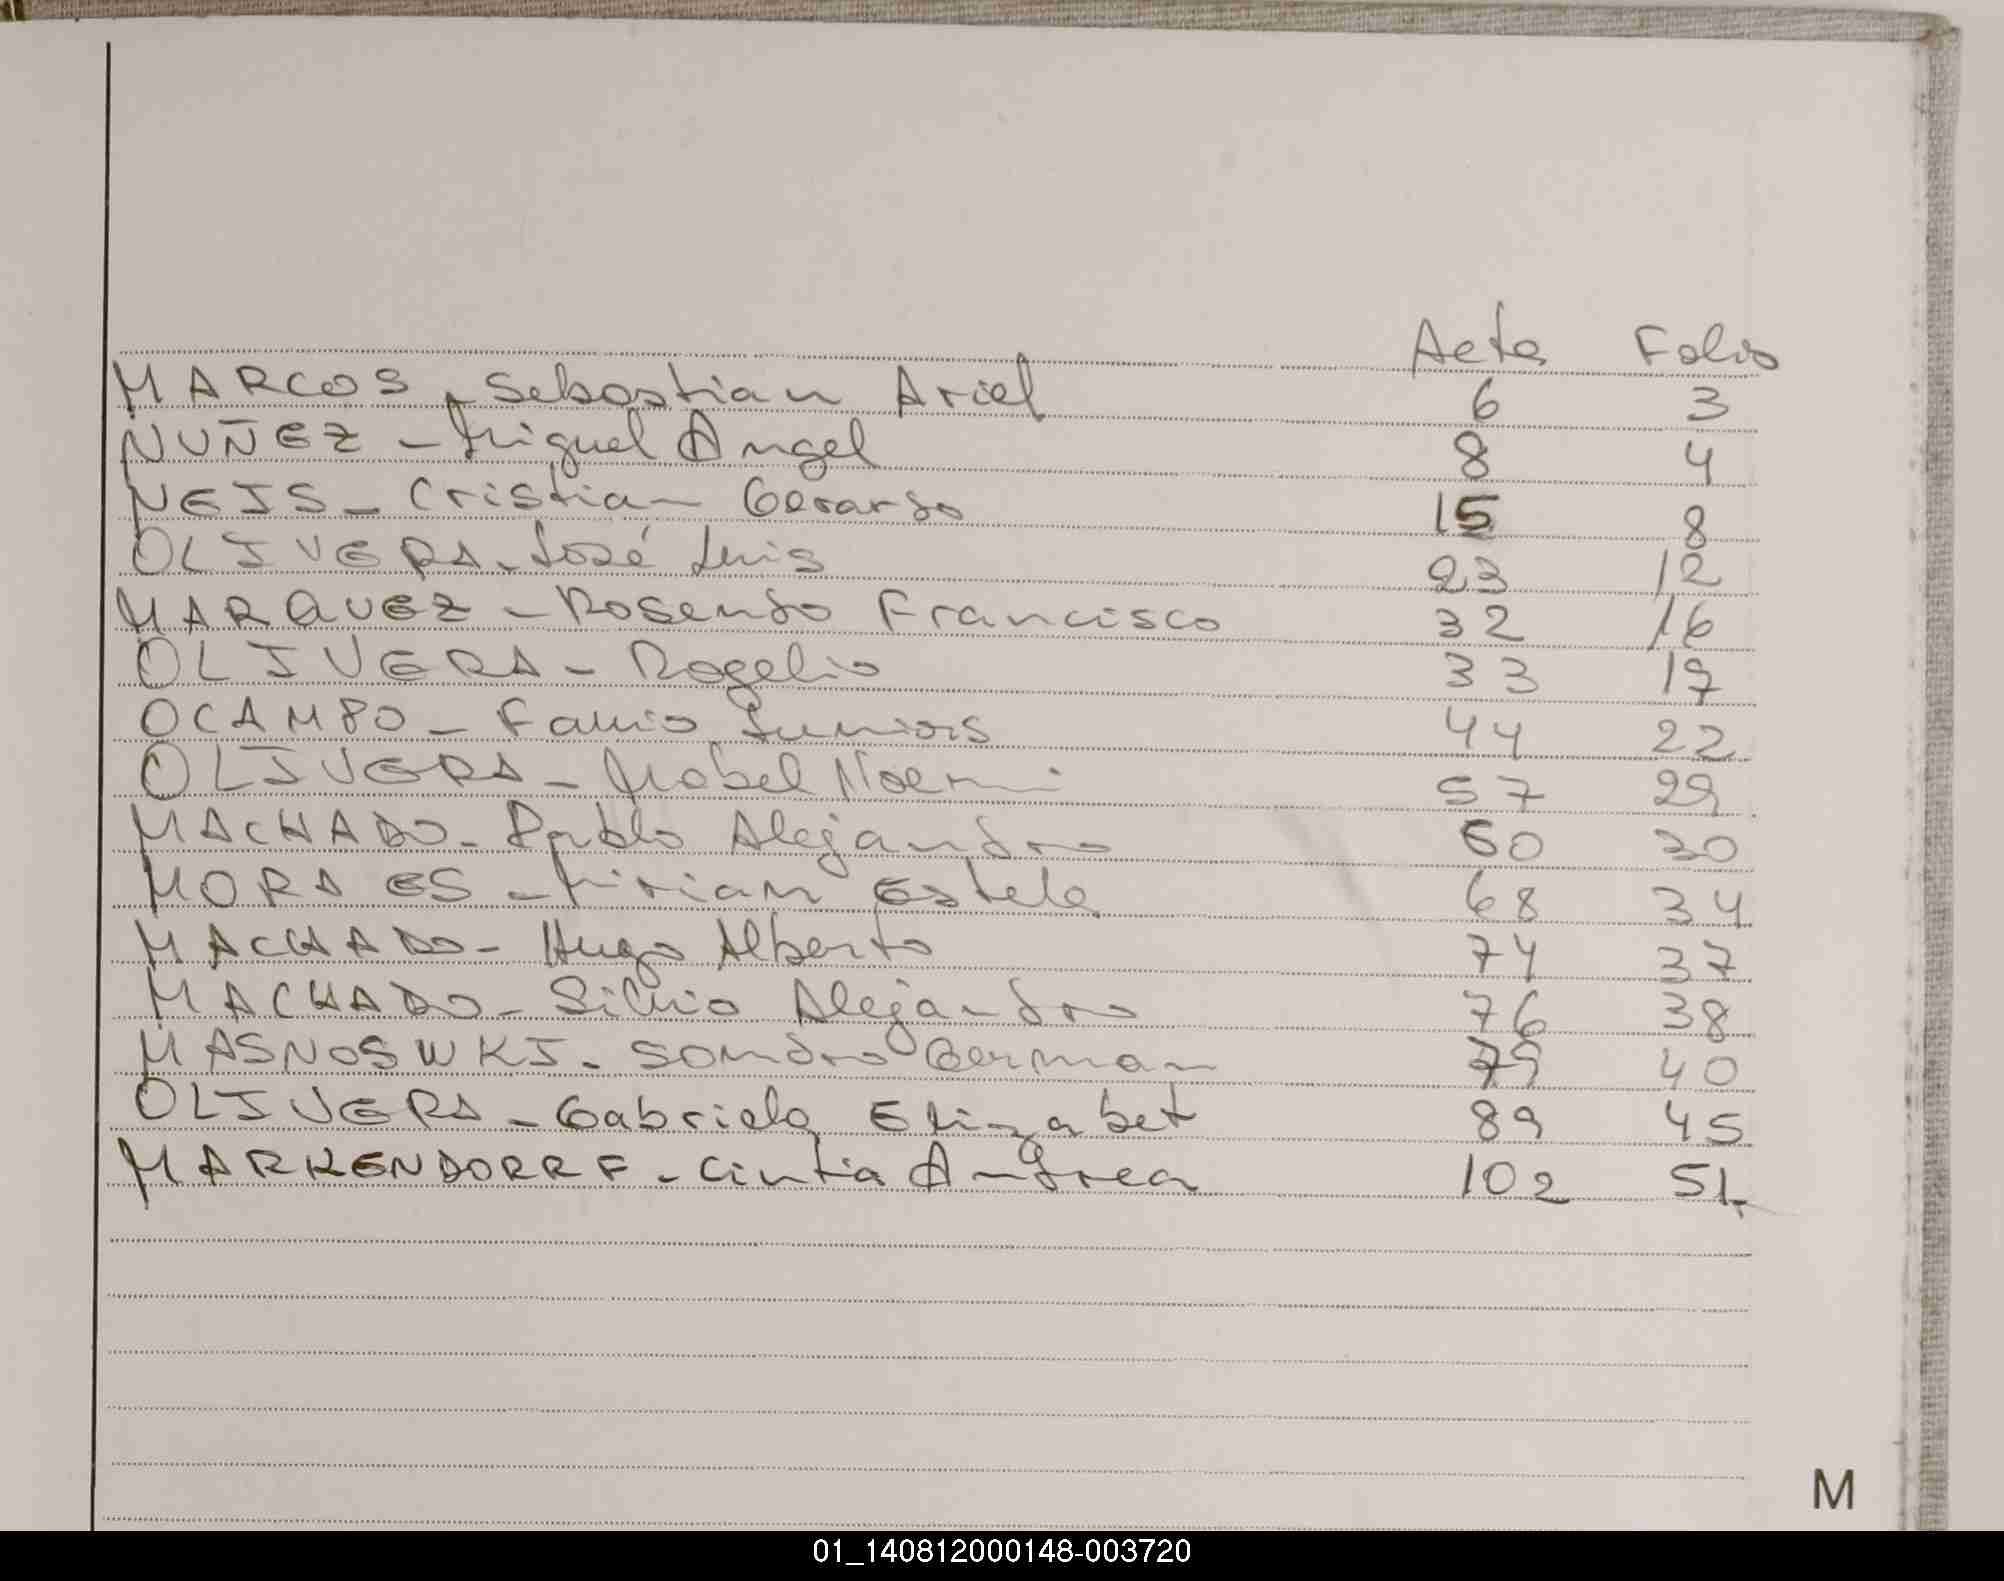 Acta Folio
MARCOS - Sebastian Ariel 6 3
NUÑEZ - Miguel Angel 8 4
NEIS - Cristian Gerardo 15 8
OLIVERA - José Luis 23 12
MARQUEZ - Rosendo Francisco 32 16
OLIVERA - Rogelio 33 17
OCAMPO - Favio Juniors 44 22
OLIVERA - Mabel Noemi 57 29
MACHADO - Pablo Alejandro 60 30
MORAES - Mirian Estela 68 34
MACHADO - Hugo Alberto 74 37
MACHADO - Silvio Alejandro 76 38
MASNOSWKI - Sandro German 79 40
OLIVERA - Gabriela Elizabet 89 45
MARKENDORRF - Cintia Andrea 102 51
M
01_140812000148-003720